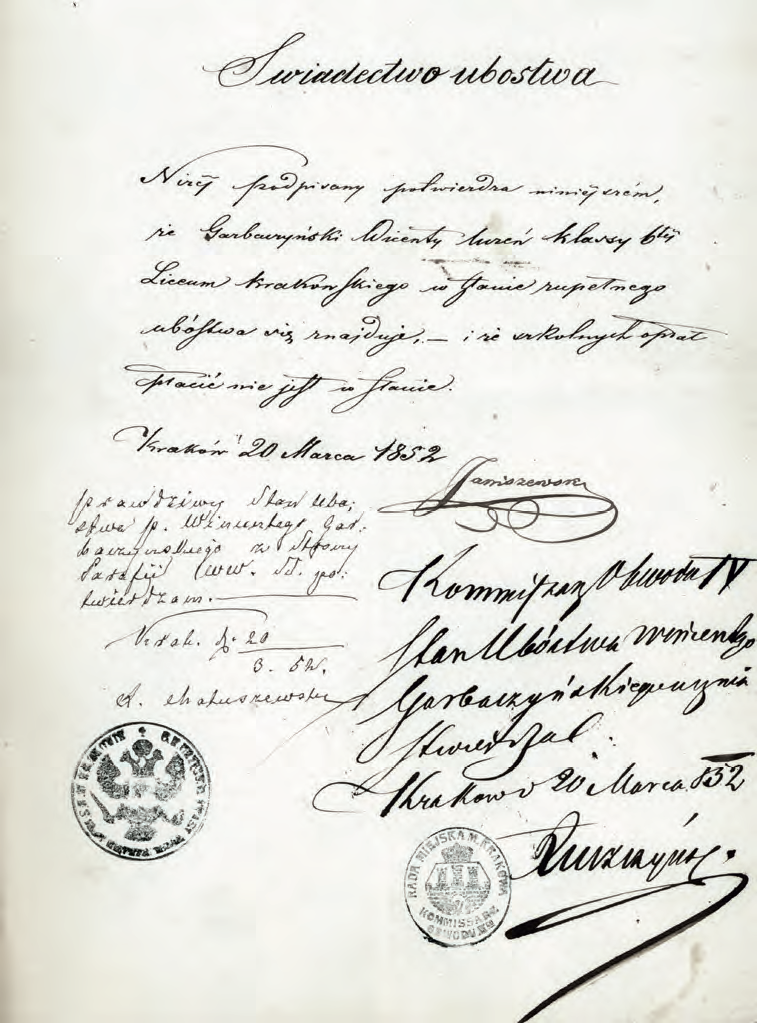 Świadectwo ubóstwa
Niżej podpisany potwierdza niniejszém,
że Garbaczyński Wicenty Uczeń klassy 6téj
Liceum krakowskiego w stanie zupełnego
ubóstwa się znajduje, — i że szkolnych opłat
płacić nie jest w stanie.
Kraków 20 Marca 1852
Janiszewski
prawdziwy stan ubó:
stwa p. Wincentego Gar:
baczyńskiego z strony
Parafii WW. ŚŚ. po:
twierdzam.
Krak. d. 20
3. 52.
Matuszewski
Kommissarz Obwodu IV
Stan Ubóstwa Wincentego
Garbaczyńskiego ucznia
Stwierdzał.
Kraków 20 Marca 852
RADA MIEJSKA M. KRAKOWA
KOMMISSARZ
OBWODU IV